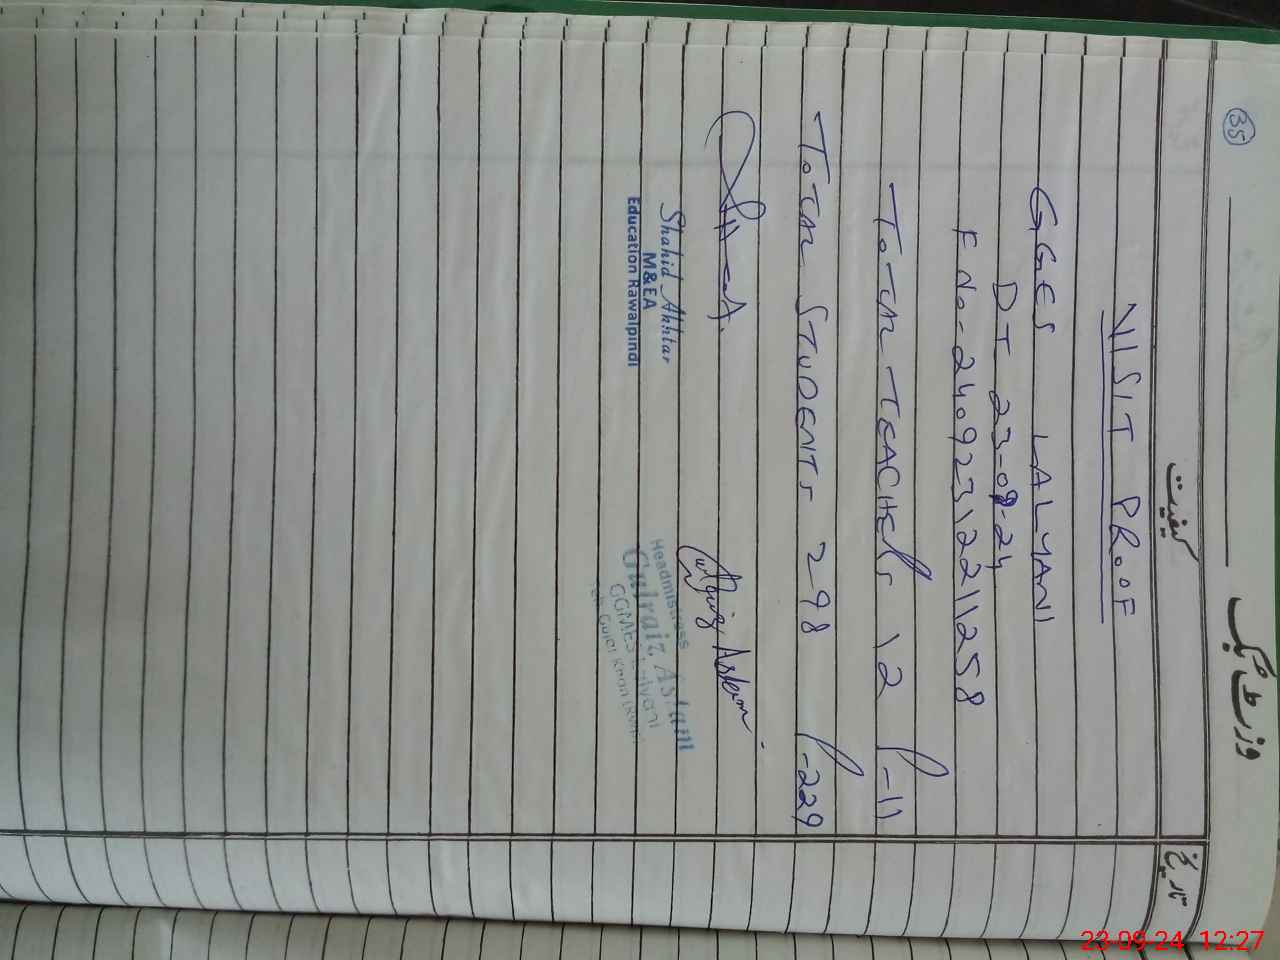 35
وزٹ بک
تاریخ
کیفیت
VISIT PROOF
GGES LALYANI
DT 23-09-24
F No-24092312211258
TOTAL TEACHERS 12 P-11
TOTAL STUDENTS 298 P-229
Shahid Akhtar
M&EA
Education Rawalpindi
Headmistress
Gulraiz Aslam
GGMES Lalyani
Teh. Gujar Khan (RWP)
23-09-24 12:27